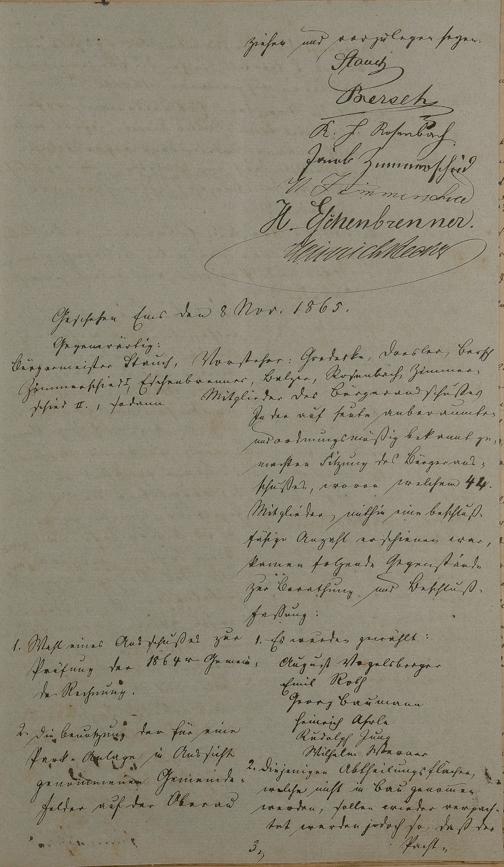 ziehen und vorzulegen seyen.
Stauch
Bersch
K. J. Rosenbach
Jacob Zimmerschied
H. Zimmerschied
H. Eschenbrenner.
Heinrich Becker
Geschehen Ems den 8 Nov. 1865.
Gegenwärtig:
Bürgermeister Stauch, Vorsteher: Goedecke, Doesler, Bersch
Zimmerschied I, Eschenbrenner, Balzer, Rosenbach, Zimmer-
schied II., sodann Mitglieder des Bürgerausschußes
In der auf heute anberaumten
und ordnungsmäßig bekannt ge-
machten Sitzung des Bürgeraus-
schußes, wovon welchem 44
Mitglieder, mithin eine beschluß-
fähige Anzahl erschienen war,
kamen folgende Gegenstände
zur Berathung und Beschluß-
fassung:
1. Wahl eines Ausschußes zur
Prüfung der 1864r Gemein-
de Rechnung.
1. Es werden gewählt:
August Vogelsberger
Emil Roth
Georg Baumann
Heinrich
Rudolph Jung
Wilhelm Werner
2. Die Benutzung der für eine
Park-Anlage in Aussicht
genommenen Gemeinde-
felder auf der Oberau
2. Diejenigen Abtheilungsflächen,
welche nicht in Bau genommen
werden, sollen wieder verpach-
tet werden jedoch so, daß der
Pacht-